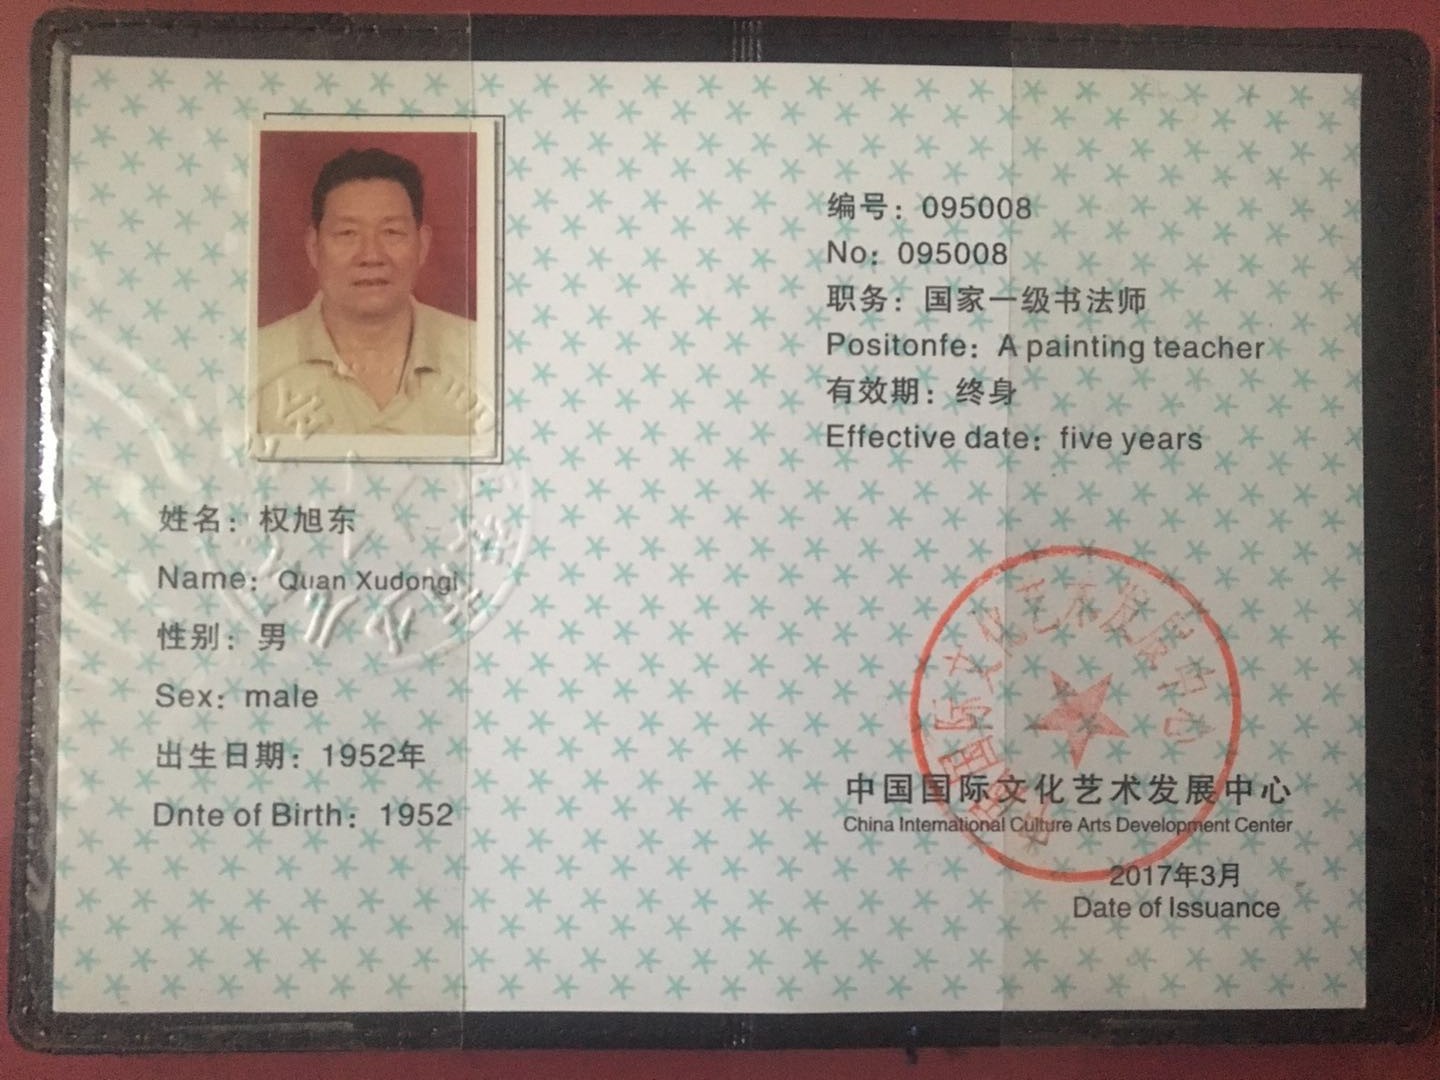 姓名：权旭东
Name：Quan Xudongi
性别：男
Sex：male
出生日期：1952年
Dnte of Birth：1952
编号：095008
No：095008
职务：国家一级书法师
Positonfe：A painting teacher
有效期：终身
Effective date：five years
中国国际文化艺术发展中心
中国国际文化艺术发展中心
China International Culture Arts Development Center
2017年3月
Date of Issuance